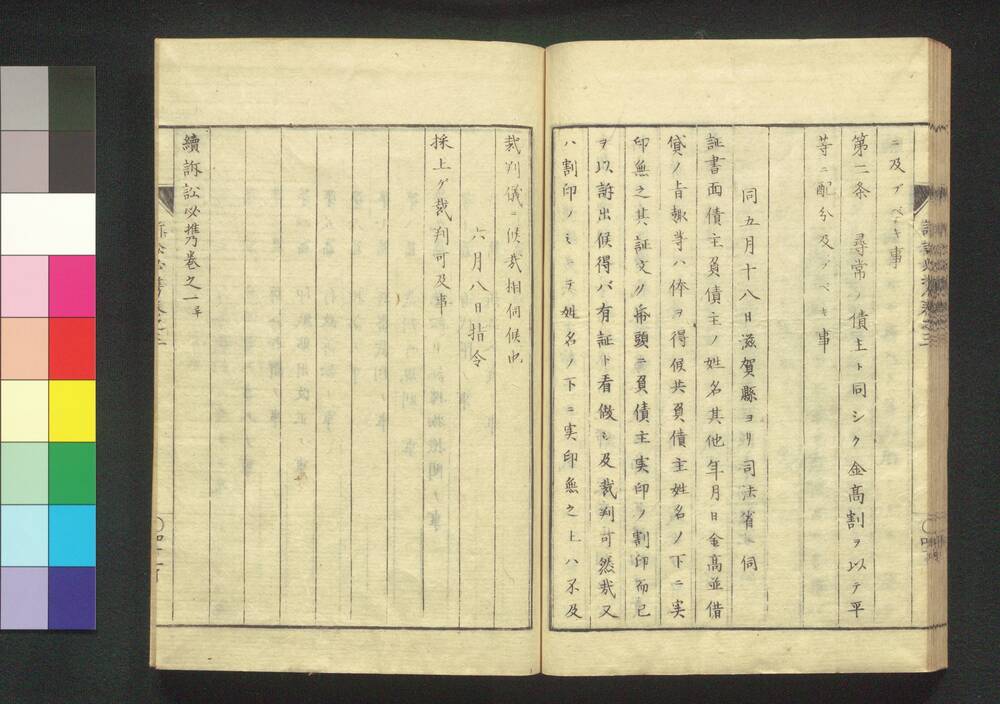 ニ及ブベキ事
第二条　尋常ノ債主ト同シク金高割ヲ以テ平
等ニ配分及ブベキ事
同五月十八日滋賀縣ヨリ司法省ヘ伺
証書面債主負債主ノ姓名其他年月日金高並借
貸ノ旨趣等ハ倅ヲ得候共負債主姓名ノ下ニ実
印無之其証文ノ帋頭ニ負債主実印ノ割印而已
ヲ以訴出候得バ有証ト看做シ及裁判可然哉又
ハ割印ノミニテ姓名ノ下ニ実印無之上ハ不及
裁判儀ニ候哉相伺候也
六月八日指令
採上ゲ裁判可及事
續訴訟必携巻之一